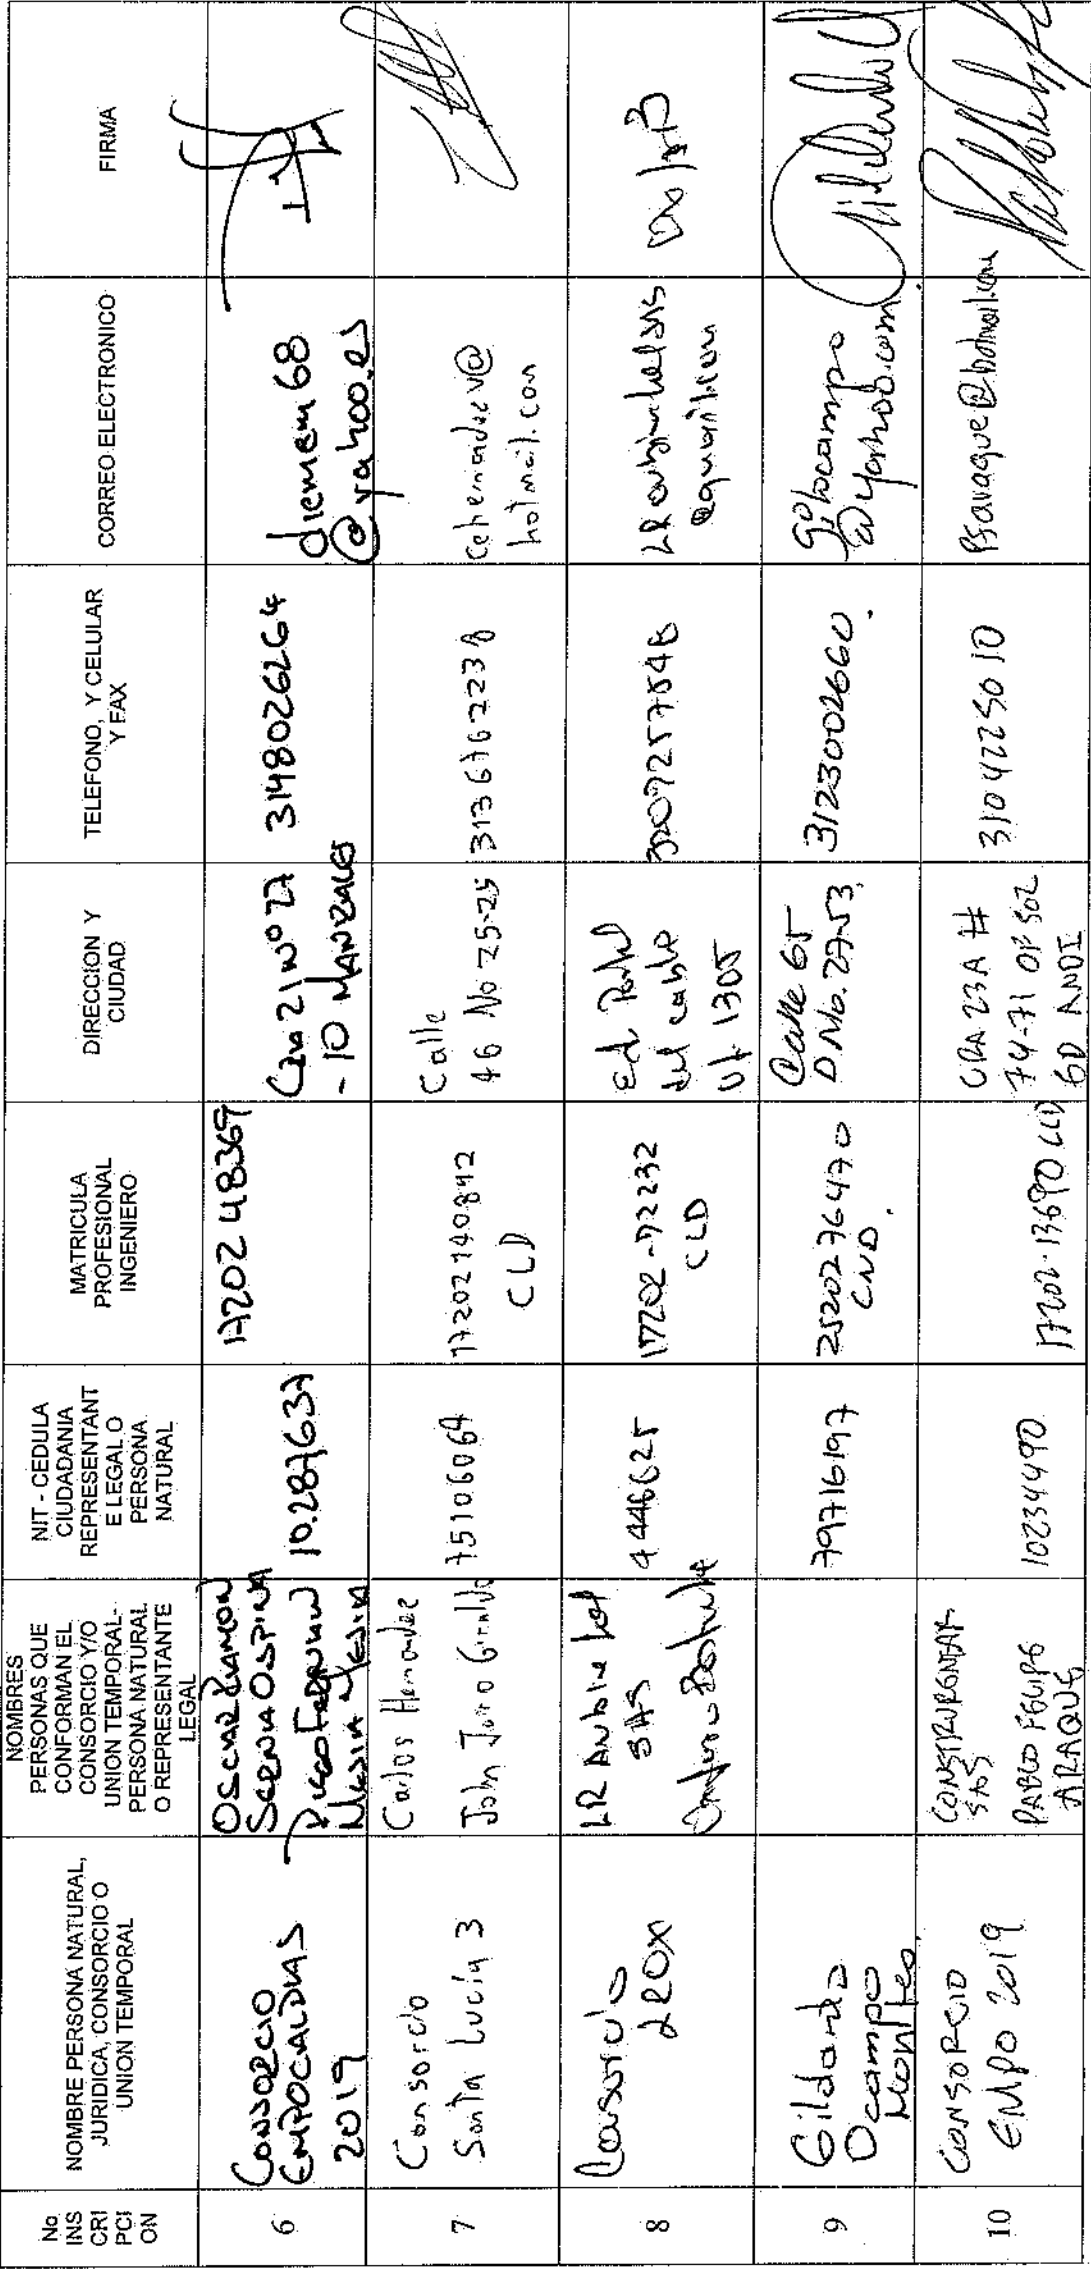 No.
INS
CRI
PCI
ON
NOMBRE PERSONA NATURAL,
JURIDICA, CONSORCIO O
UNION TEMPORAL
NOMBRES
PERSONAS QUE
CONFORMAN EL
CONSORCIO Y/O
UNION TEMPORAL-
PERSONA NATURAL
O REPRESENTANTE
LEGAL
NIT - CEDULA
CIUDADANIA
REPRESENTANT
E LEGAL O
PERSONA
NATURAL
MATRICULA
PROFESIONAL
INGENIERO
DIRECCION Y
CIUDAD
TELEFONO, Y CELULAR
Y FAX
CORREO ELECTRONICO
FIRMA
6
CONSORCIO
EMPOCALDAS
2019
OSCAR RAMON
SERNA OSPINA
DIEGO FERNAN
MESIA MESIA
10.287637
17202 48369
Cra 21 Nº 27
- 10 MANIZALES
3148026264
diemem68
@yahoo.es
7
Consorcio
Santa Lucía 3
Carlos Hernandez
John Jairo Giraldo
75106064
17202140842
CLD
Calle
46 No 25-25
3136762238
cehernadezv@
hotmail.com
8
Consorcio
LROX
LR
SAS
4446625
17202-72232
CLD
Ed. Portal
del cable
Of. 1305
3207257548
@gmail.com
9
Gildardo
Ocampo
Montes.
79716197
25202 76470
CND.
Calle 65
D No. 27-53.
3123002660.
golocampo
@yahoo.com
10
CONSORCIO
EMPO 2019
SAS
PABLO FELIPE
ARAQUE
10234490
17202-13690 CLD
CRA 23A #
74-71 OF 502
ED ANDI
3104225010
Pfaraque@hotmail.com